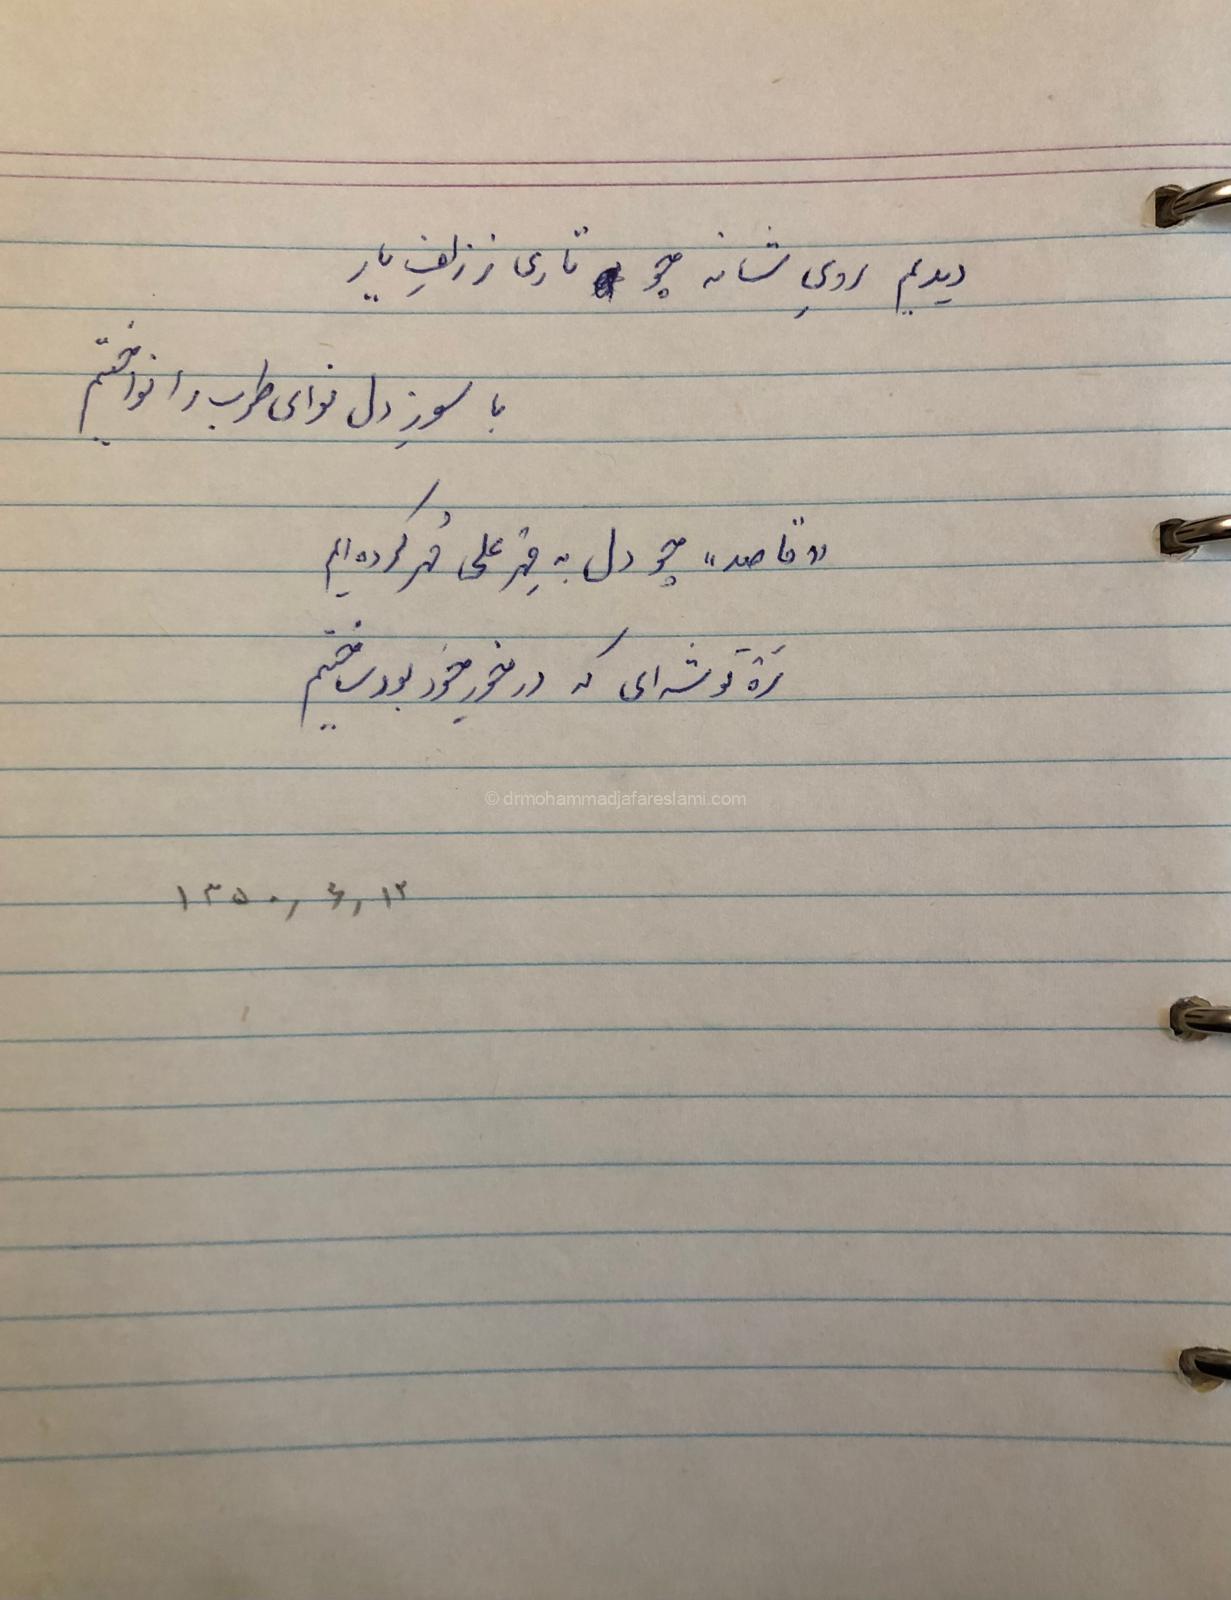 دیدیم رویِ شانه چو تاری ز زلفِ یار
با سوزِ دل نوای طرب را نواختیم
«قاصد» چو دل به مِهرِ علی مُهر کرده‌ایم
رَه تَوشه‌ای که در خورِ خود بود ساختیم
© drmohammadjafareslami.com
۱۳۵۰,۶,۱۲